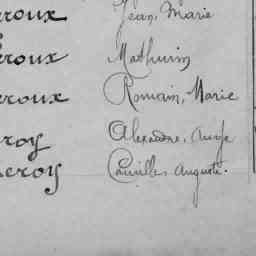 eroux Jean, Marie
eroux Mathurin
eroux Romain, Marie
eroy Alexandre,
eroy Camille, Auguste.